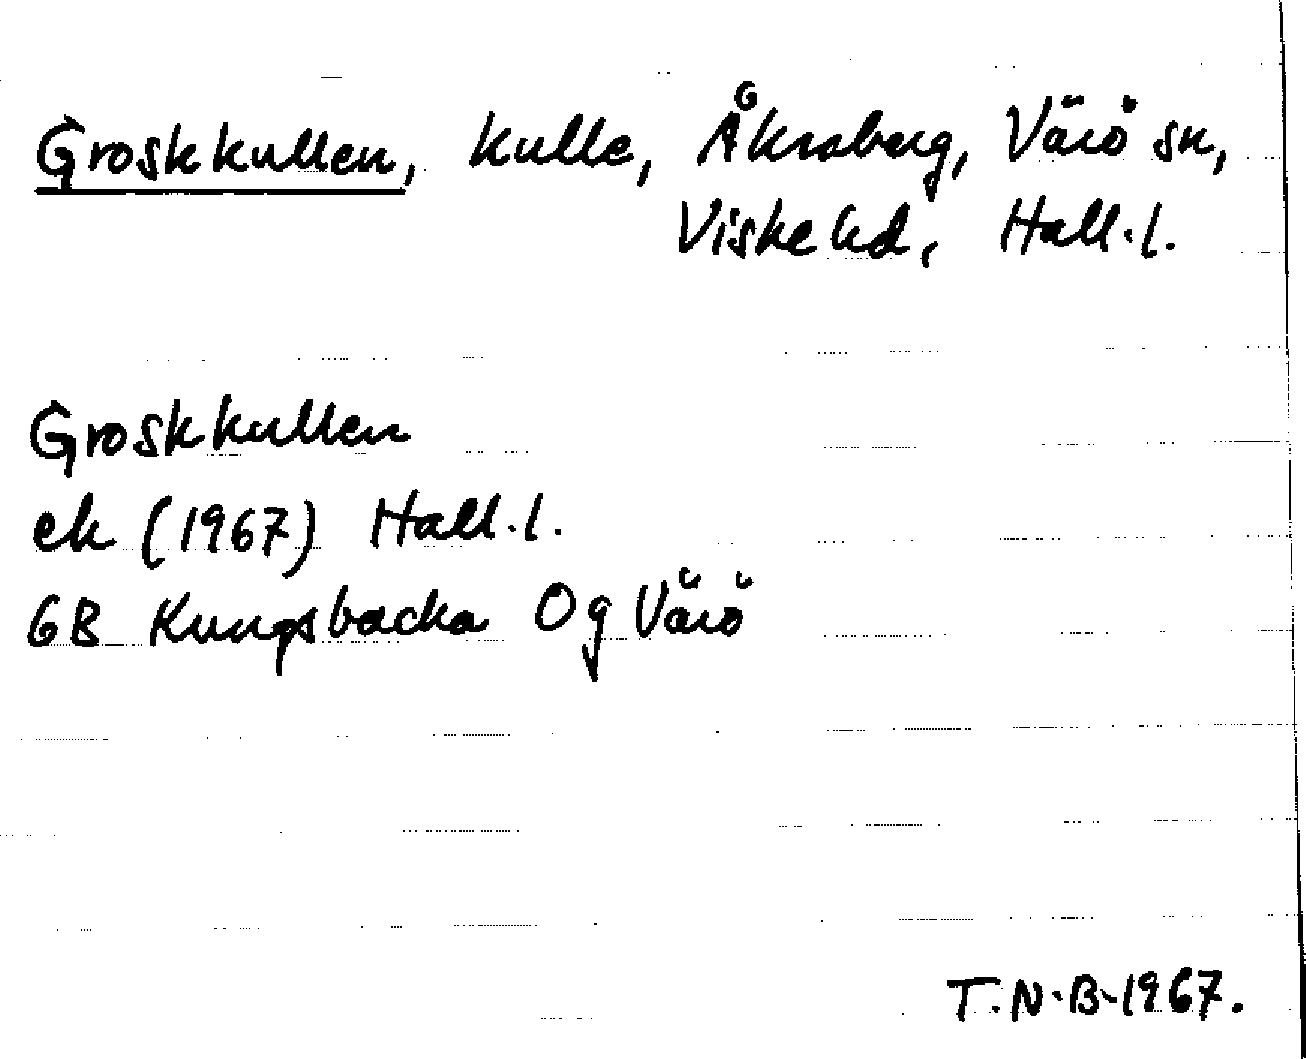 Groskkullen, kulle, Åkraberg, Värö sn,
Viske hd, Hall.l.
Groskkullen
ek (1967) Hall.l.
6B Kungsbacka Og Värö
T.N.B. 1967.